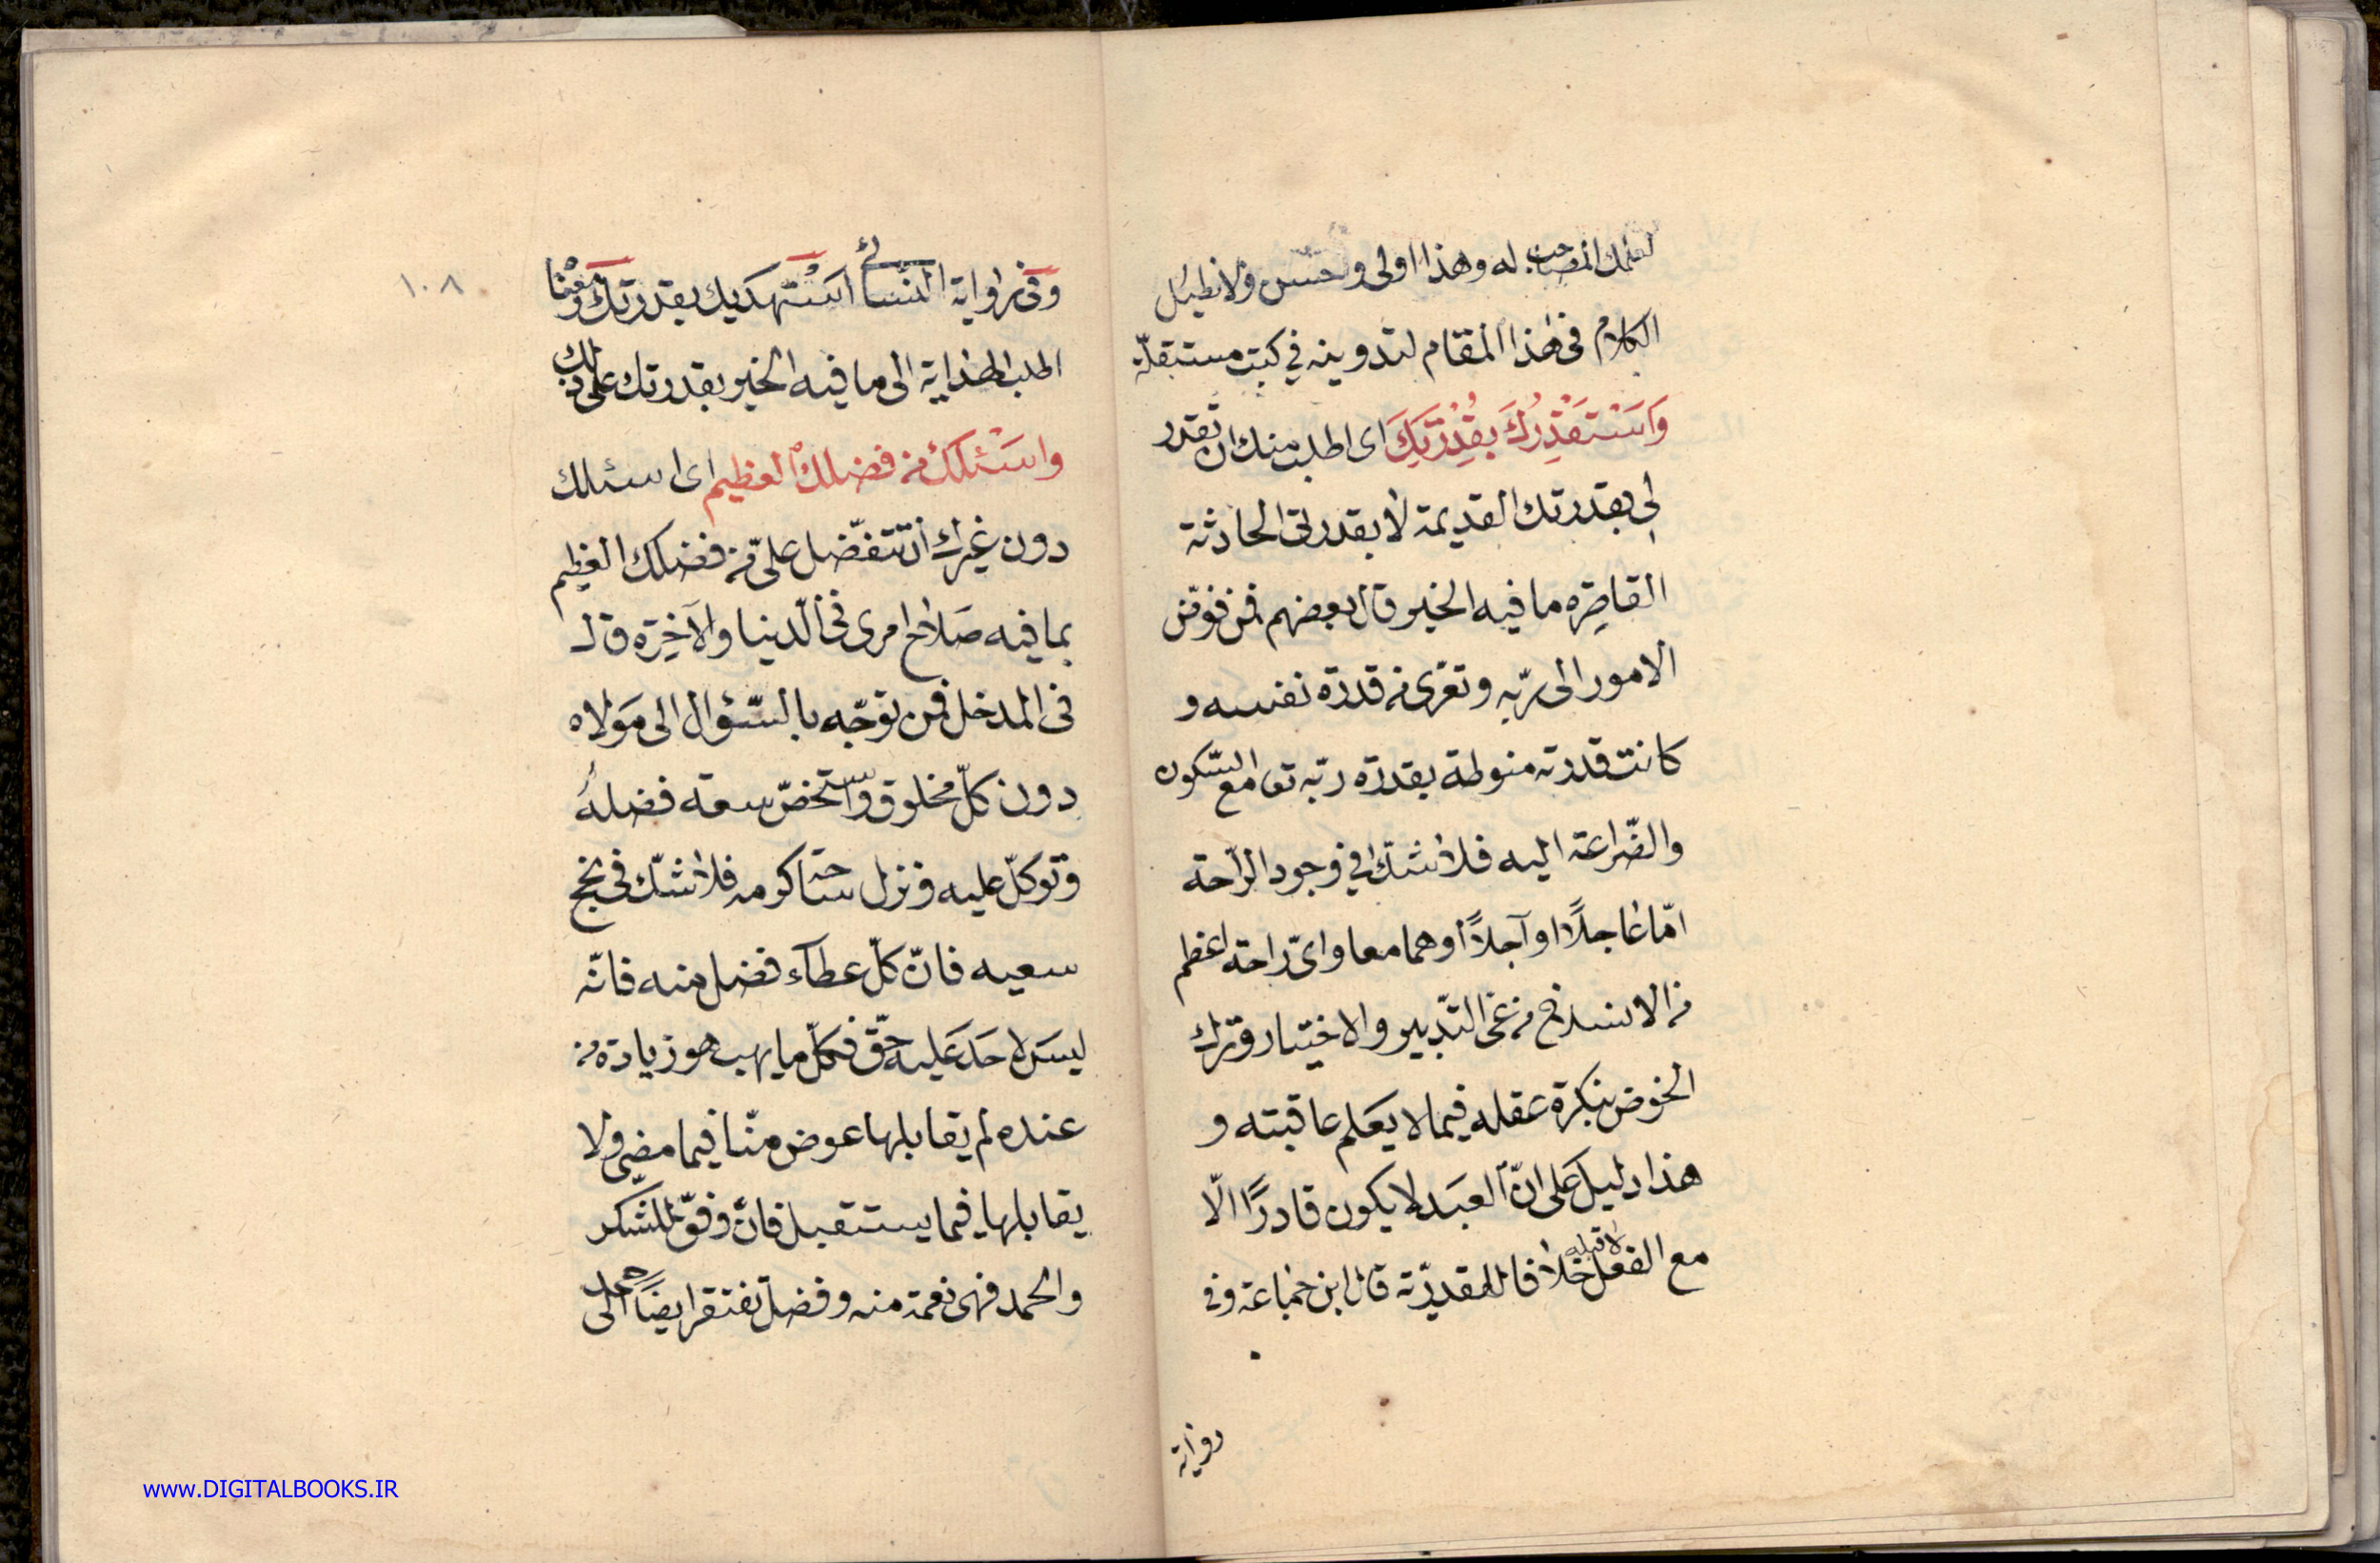 لعلمك المصاحب له وهذا اولى وحسن ولا نطيل
الكلام فى هذا المقام لتدوينه في كتب مستقلّة
وَاَسْتَقْدِرُكَ بِقُدْرَتِكَ اى اطلب منك ان تقدر
لى بقدرتك القديمة لا بقدرتى الحادثة
القاصِرَه ما فيه الخير قال بعضهم فمن فوّض
الامور الى ربّه وتعرّى من قدرة نفسه و
كانت قدرته منوطة بقدرة ربّه تعا مع السّكون
والضّراعة اليه فلا شك في وجود الرّاحة
امّا عاجلًا او آجلاً أو هما معا واىّ راحة اعظم
من الانسلاخ من عنى التّدبير والاختيار وترك
الخوض بفكرة عقله فيما لا يعلم عاقبته و
هذا دليل على انّ العبد لا يكون قادرًا الّا
مع الفعل لا قبله خلافا للقدريّة قال ابن جماعة وفى
رواية
١٠٨
وفى رواية النسائى استهديك بقدرتك ومعنا
اطلب الهداية الى ما فيه الخير بقدرتك على ذلك
واسئلك من فضلك العظيم اى اسئلك
دون غيرك أن تتفضّل علىّ من فضلك العظيم
بما فيه صلاح امرى فى الدّنيا والآخِرَه قال
فى المدخل فمن توجّه بالسّؤال الى مولاه
دون كلّ مخلوق واستحضر سعة فضله
وتوكّل عليه ونزل ساحة كرمه فلا شكّ فى نجح
سعيه فانّ كلّ عطآء فضل منه فانّه
ليس لاحد عليه حقّ فكلّ ما يهب هو زيادة من
عنده لم يقابلها عوض منّا فيما مضى ولا
يقابلها فيما يستقبل فان وفّق للشكر
والحمد فهى نعمة منه وفضل تفتقر ايضًا الى حمد
www.DIGITALBOOKS.IR